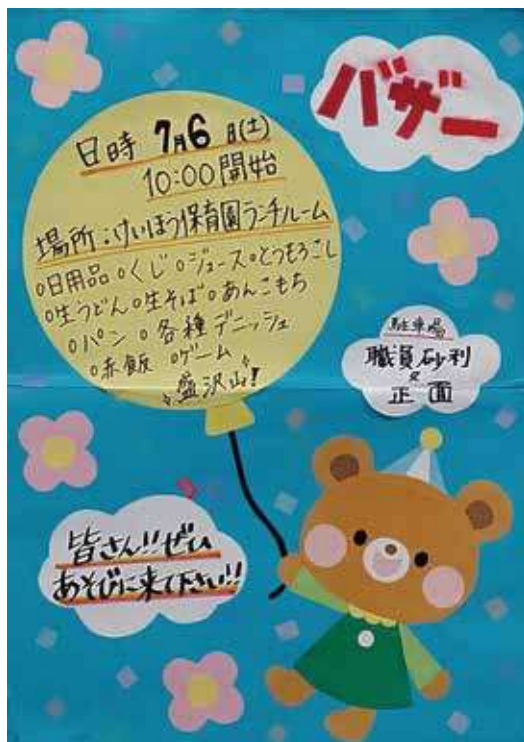 バザー
日時 7月6日(土)
10:00開始
場所:けいほう保育園ランチルーム
○日用品 ○くじ ○ジュース ○とうもろこし
○生うどん ○生そば ○あんこもち
○パン ○各種デニッシュ
○赤飯 ○ゲーム
盛沢山!
駐車場
職員砂利
&
正面
皆さん!!ぜひ
あそびに来て下さい!!